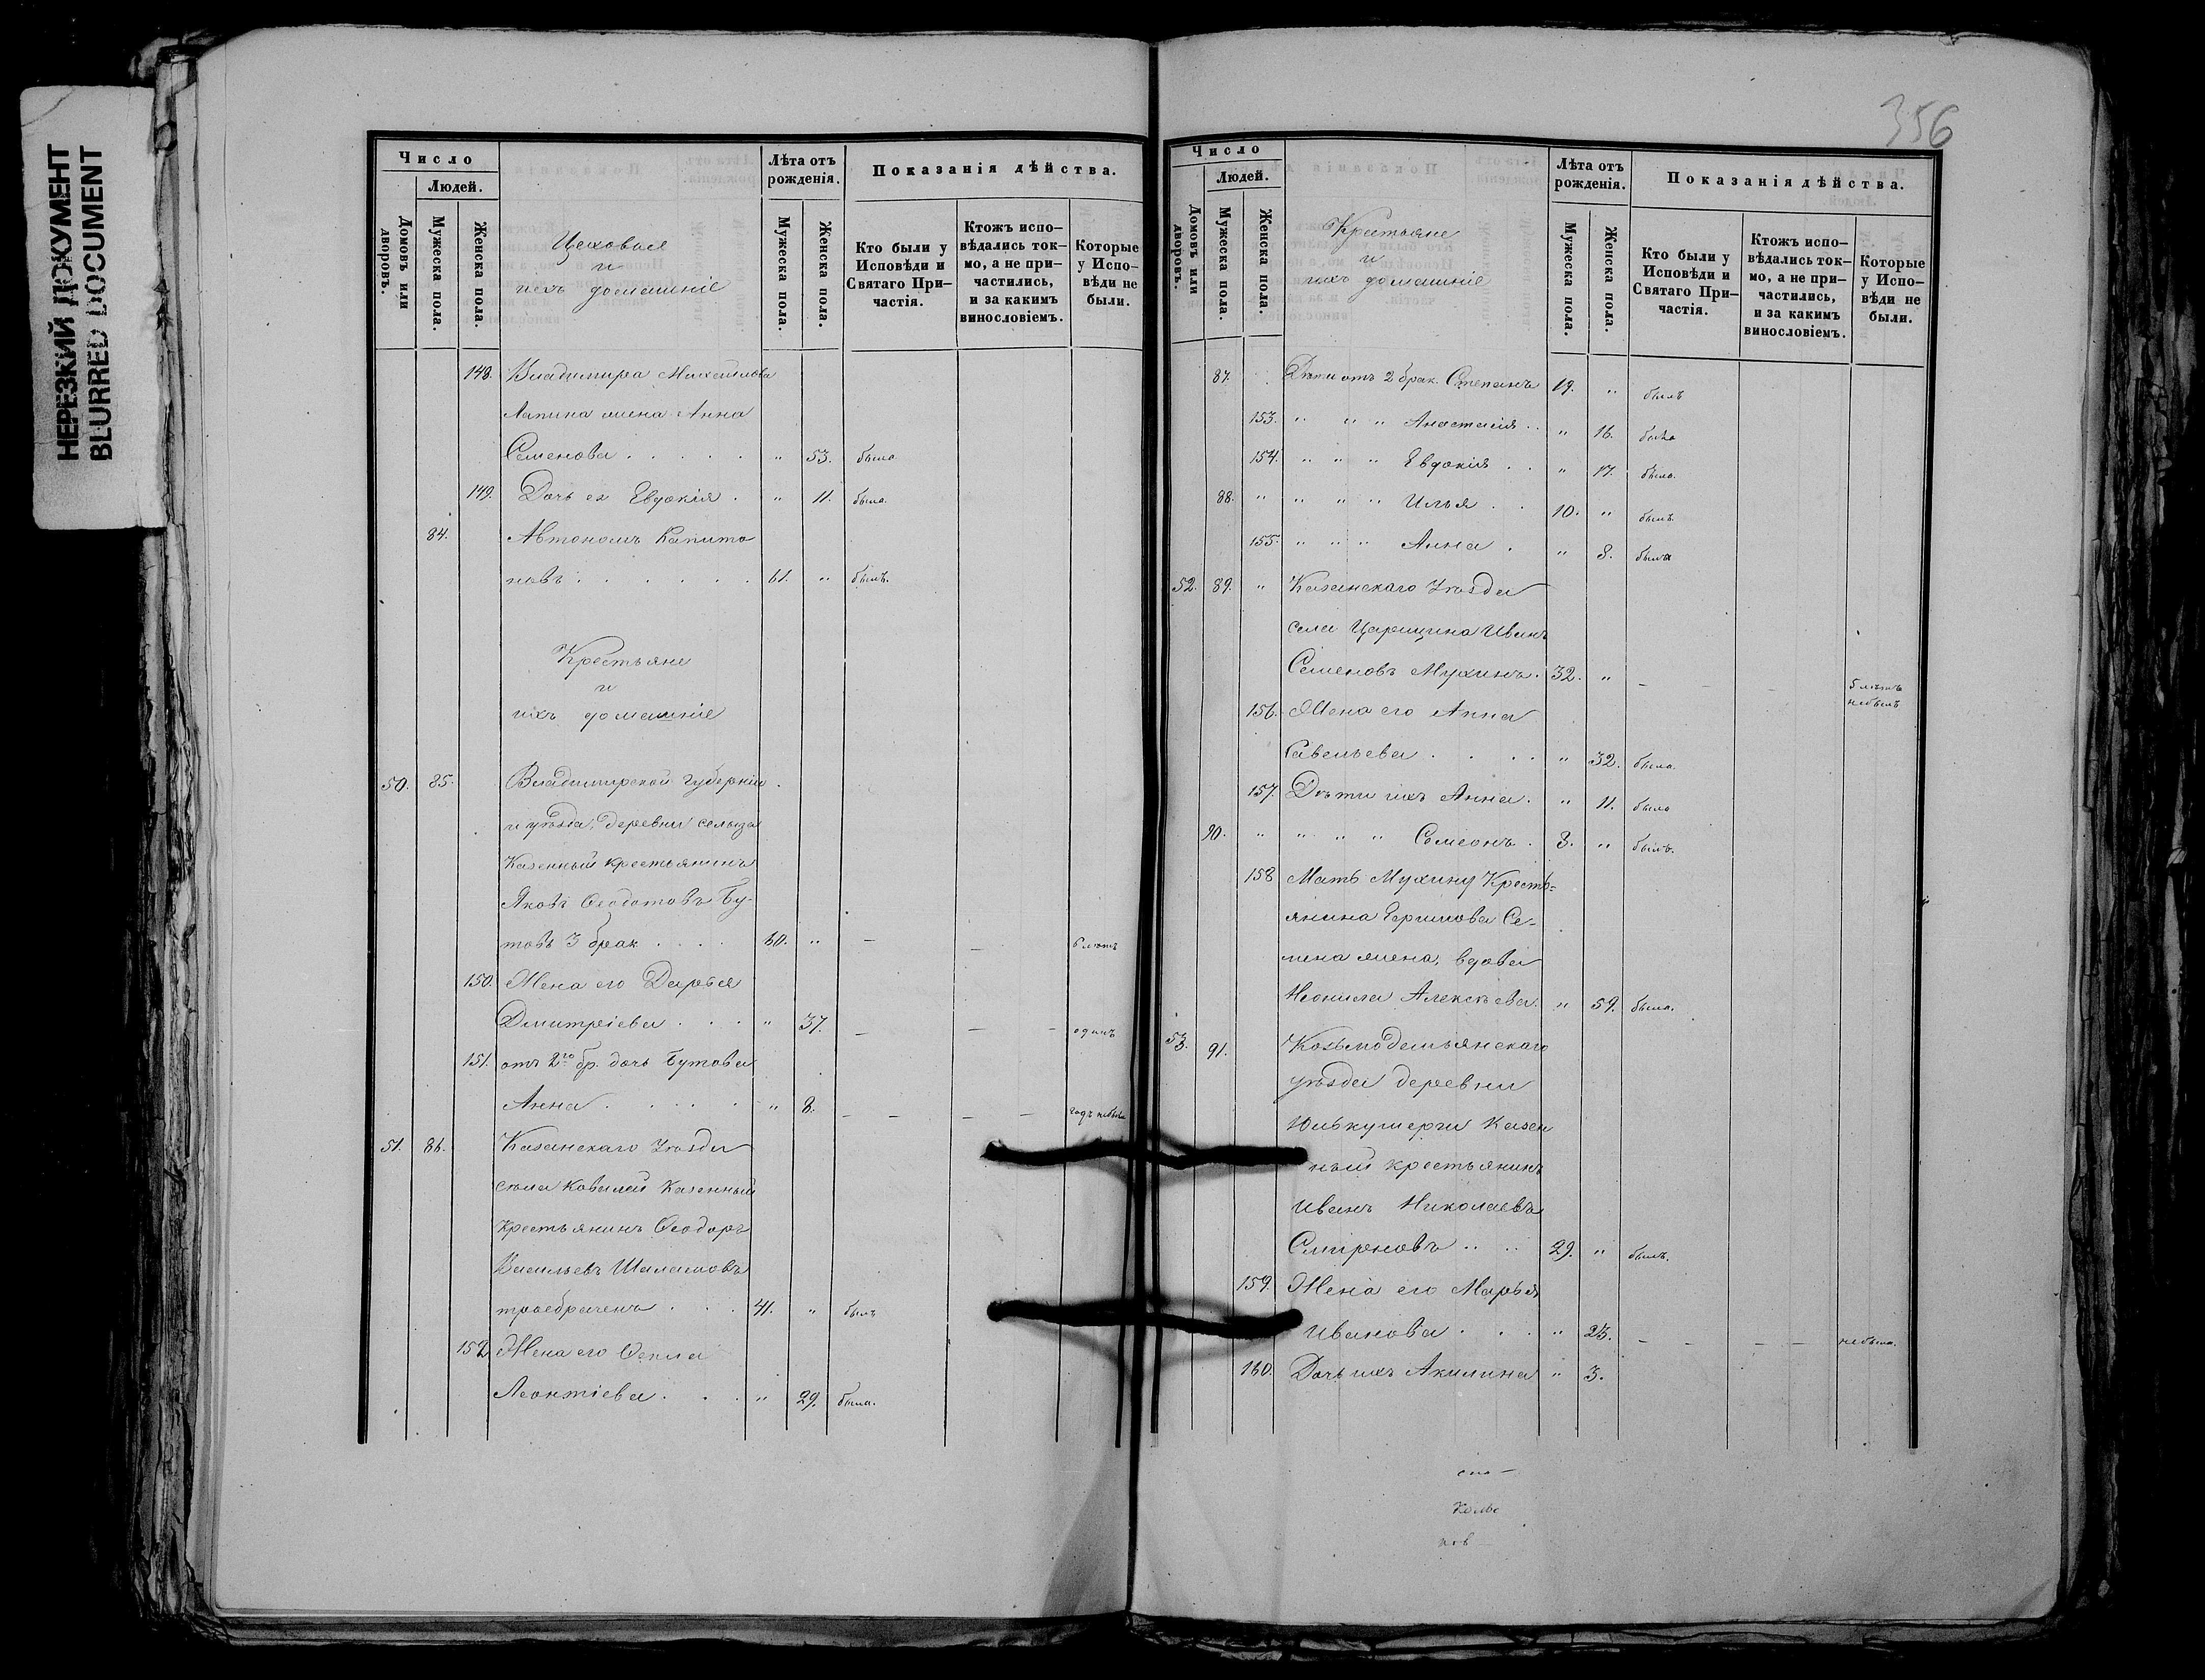 НЕРЕЗКИЙ ДОКУМЕНТ
BLURRED DOCUMENT
Число
Людей.
Домовъ или дворовъ.
Мужеска пола.
Женска пола.
Цеховые
и
ихъ домашніе
Лѣта отъ рожденія.
Мужеска пола.
Женска пола.
Показанія дѣйства.
Кто были у Исповѣди и Святаго При-частія.
Ктожъ испо-вѣдались ток-мо, а не при-частились, и за какимъ винословіемъ.
Которые у Испо-вѣди не были.
148. Владимира Михайлова
Лапина жена Анна
Семенова . . . . . " 53. была
149. Дочь ея Евдокія . " 11. была.
84. Автономъ Капито
новъ . . . . . . 61. " былъ.
Крестьяне
и
ихъ домашніе
50. 85. Владимирской губерніи
и уѣзда, деревни
Казенный крестьянинъ
Яковъ Ѳеодотовъ Бу-
товъ 3 брак . . . . 60. " — — 6 лѣтъ
150. Жена его Дарья
Дмитріева . . . " 37. — — — одинъ
151. отъ 2го бр. дочь Бутова
Анна . . . . . " 8. — — — — годъ небыла
51. 86. Казанскаго Уѣзда
села Ковалей Казенный
крестьянинъ Ѳеодоръ
Васильевъ Шаламовъ
троебраченъ . . . 41. " былъ
152 Жена его Ѳекла
Леонтіева . . . " 29. была.
356
Число
Людей.
Домовъ или дворовъ.
Мужеска пола.
Женска пола.
Крестьяне
и
ихъ домашніе
Лѣта отъ рожденія.
Мужеска пола.
Женска пола.
Показанія дѣйства.
Кто были у Исповѣди и Святаго При-частія.
Ктожъ испо-вѣдались ток-мо, а не при-частились, и за какимъ винословіемъ.
Которые у Испо-вѣди не были.
87. Дѣти отъ 2 брак. Степанъ 19. " былъ
153. " " " Анастасія . . " 16. была
154. " " " Евдокія . . " 17. была.
88. " " " " Илья . . 10. " былъ.
155. " " " Анна . " 8. была
52. 89. " Казанскаго Уѣзда
села Царицина Иванъ
Семеновъ Мухинъ. 32. " — — — 5 лѣтъ небылъ
156. Жена его Анна
Савельева . . . . " 32. была.
157. Дѣти ихъ Анна. " 11. была
90. " " " " Симеонъ . 8. " былъ.
158 Мать Мухину Кресть-
янина Се-
мена жена, вдова
Неонила Алексѣева. " 59. была.
53. 91. Козьмодемьянскаго
уѣзда деревни
Юлькушерги Казен
ный крестьянинъ
Иванъ Николаевъ
Смирновъ . . . . 29. " былъ.
159. Жена его Марья
Иванова . . . " 23. — — — — небыла.
160. Дочь ихъ Акилина " 3.